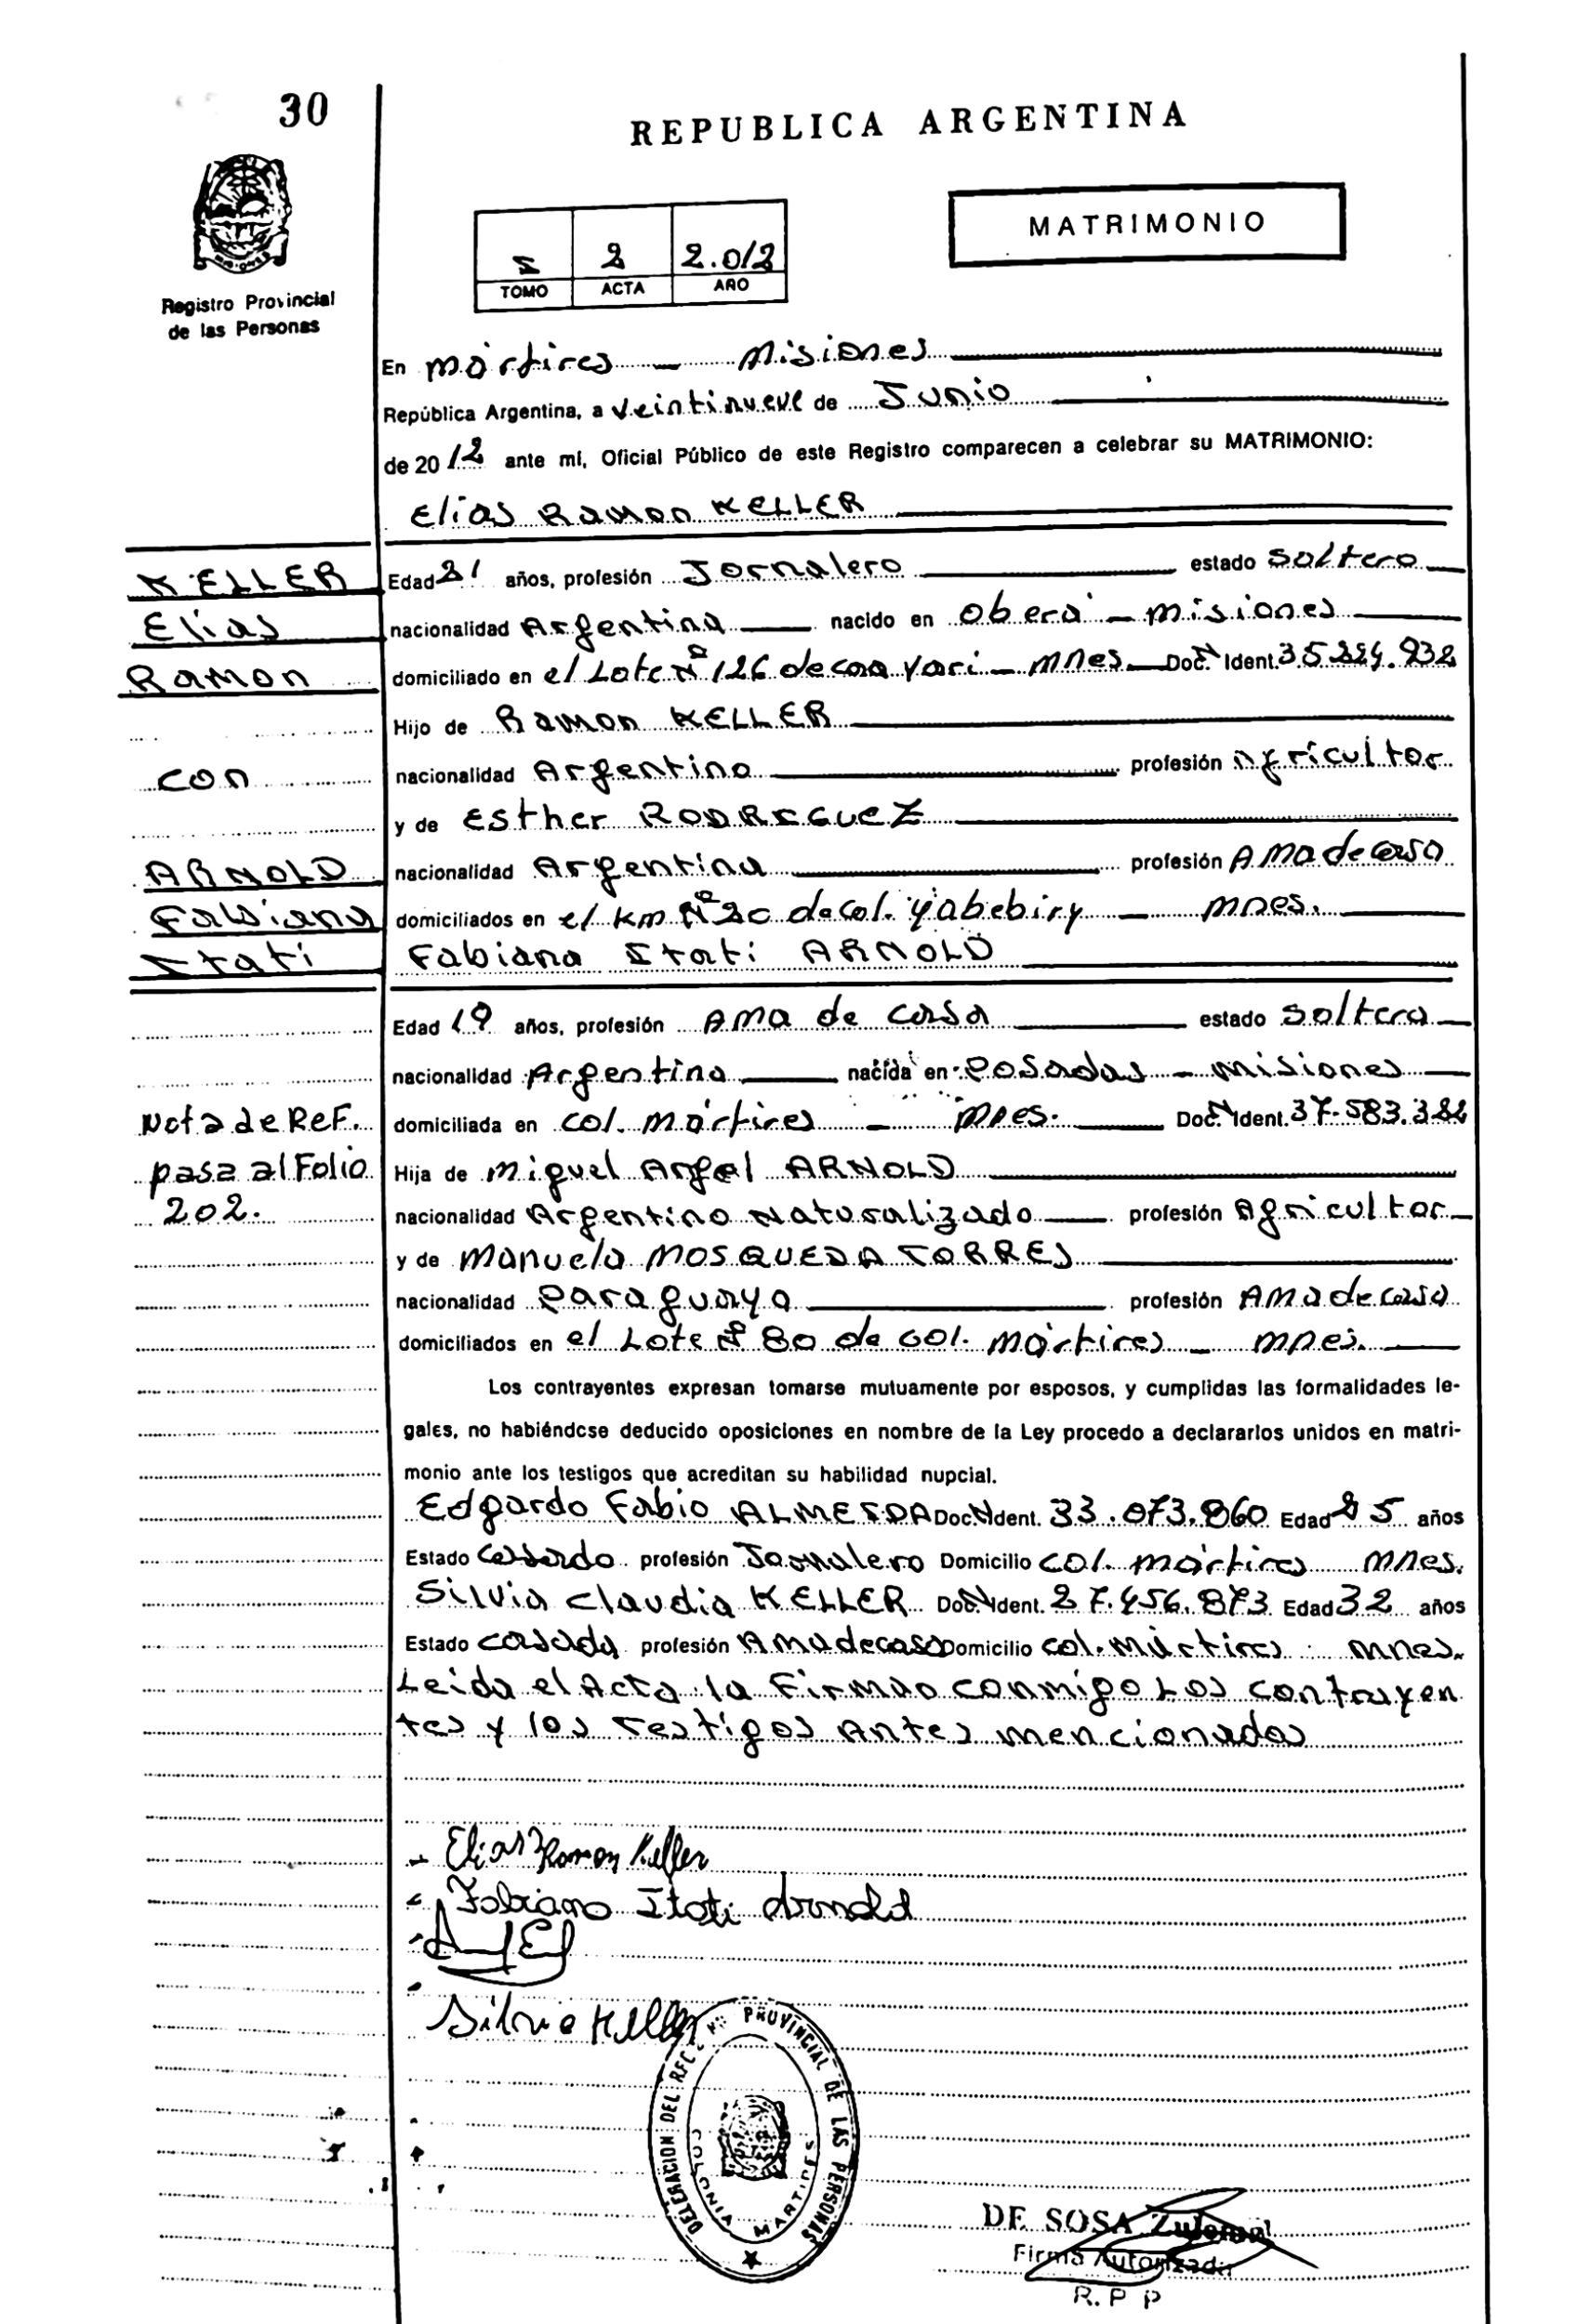 30
REPUBLICA ARGENTINA
MATRIMONIO
I 2 2.012
TOMO ACTA AÑO
Registro Provincial
de las Personas
En Mártires - Misiones
República Argentina, a veintinueve de Junio
de 2012 ante mí, Oficial Público de este Registro comparecen a celebrar su MATRIMONIO:
Elias Ramon KELLER
KELLER
Elias
Ramon
con
ARNOLD
Fabiana
Itatí
Nota de Ref.
pasa al Folio
202.
Edad 21 años, profesión Jornalero estado soltero
nacionalidad Argentina nacido en Oberá - Misiones
domiciliado en el Lote Nº 126 de Caa Yari - Mnes Doc. N Ident. 35.224.932
Hijo de Ramon KELLER
nacionalidad Argentino profesión Agricultor
y de Esther RODRIGUEZ
nacionalidad Argentina profesión Ama de casa
domiciliados en el Km Nº 20 de Col. Yabebiry - Mnes.
Fabiana Itatí ARNOLD
Edad 19 años, profesión Ama de casa estado soltera
nacionalidad Argentina nacida en Posadas - Misiones
domiciliada en Col. Mártires - Mnes. Doc. N Ident. 37.583.322
Hija de Miguel Angel ARNOLD
nacionalidad Argentino Naturalizado profesión Agricultor
y de Manuela MOSQUEDA TORRES
nacionalidad Paraguaya profesión Ama de casa
domiciliados en el Lote Nº 80 de Col. Mártires - Mnes.
Los contrayentes expresan tomarse mutuamente por esposos, y cumplidas las formalidades le-
gales, no habiéndose deducido oposiciones en nombre de la Ley procedo a declararlos unidos en matri-
monio ante los testigos que acreditan su habilidad nupcial.
Edgardo Fabio ALMEIDA Doc. N Ident. 33.073.860 Edad 25 años
Estado Casado profesión Jornalero Domicilio Col. Mártires Mnes.
Silvia Claudia KELLER Doc. N Ident. 27.456.873 Edad 32 años
Estado casada profesión Ama de casa Domicilio Col. Mártires Mnes.
Leida el Acta la Firman conmigo Los contrayen
tes y los Testigos Antes mencionados
Elias Ramon Keller
Fabiana Itati Arnold
Silvia Keller
DELEGACION DEL REGISTRO PROVINCIAL DE LAS PERSONAS
COLONIA MARTIRES
DE SOSA Zulema
Firma Autorizada
R. P P